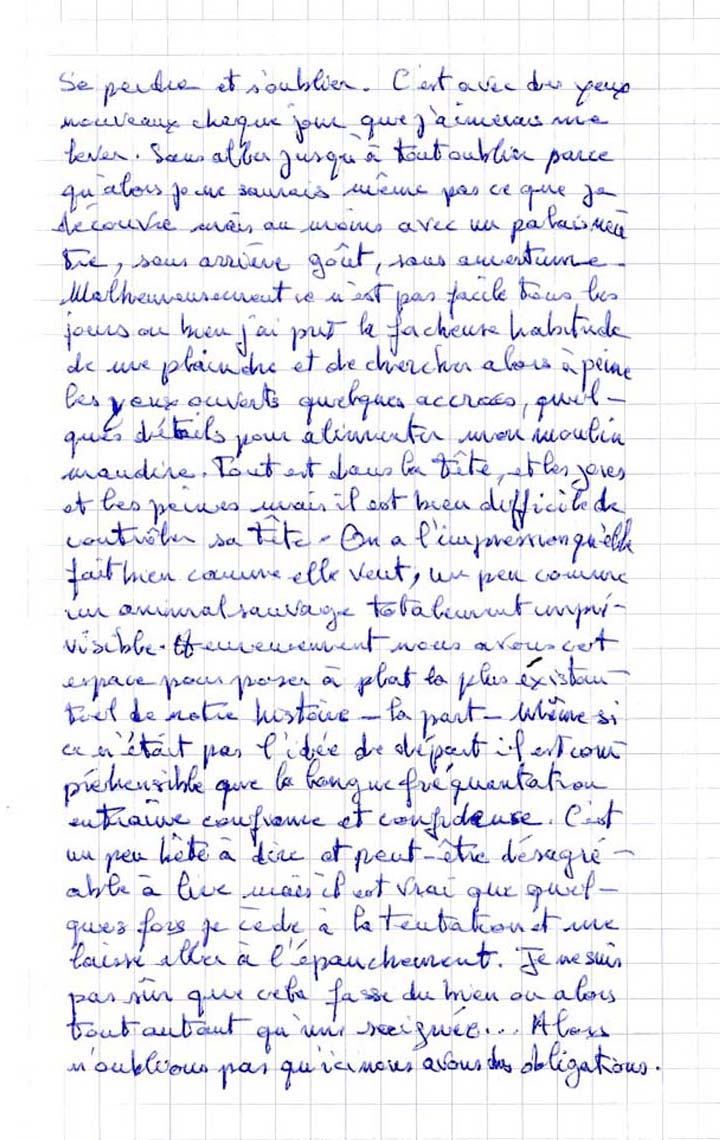 Se perdre et s'oublier. C'est avec des yeux
nouveaux chaque jour que j'aimerais me
lever. Sans aller jusqu'à tout oublier parce
qu'alors je ne saurais même pas ce que je
découvre mais au moins avec un palais neu
tre, sans arrière goût, sans amertume.
Malheureusement ce n'est pas facile tous les
jours ou bien j'ai prit la facheuse habitude
de me plaindre et de chercher alors à peine
les yeux ouverts quelques accrocs, quel-
ques détails pour alimenter mon moulin
maudire. Tout est dans la tête, et les joies
et les peines mais il est bien difficile de
contrôler sa tête. On a l'impression qu'elle
fait bien comme elle veut, un peu comme
un animal sauvage totalement impré-
visible. Heureusement nous avons cet
espace pour poser à plat la plus éxisten-
tiel de notre histoire - la part - Même si
ce n'était pas l'idée de départ il est com
préhensible que la longue fréquentation
entraine confiance et confidence. C'est
un peu bête à dire et peut-être désagré-
able à lire mais il est vrai que quel-
ques fois je cède à la tentation et me
laisse aller à l'épanchement. Je ne suis
pas sûr que cela fasse du bien ou alors
tout autant qu'une saignée... Alors
n'oublions pas qu'ici nous avons des obligations.